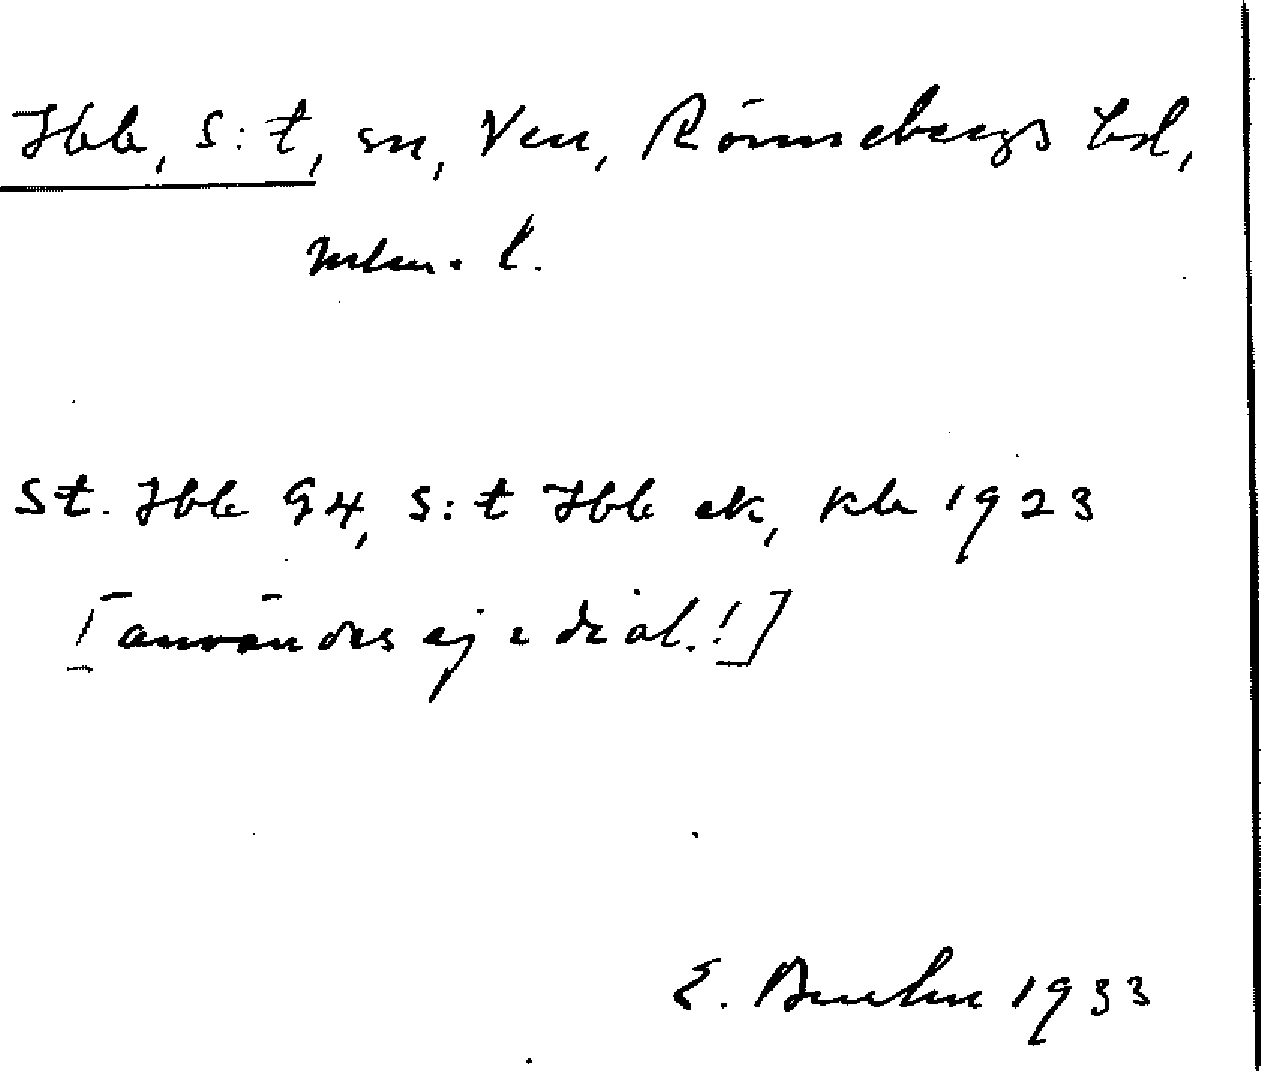 Ibb, S:t, sn, Ven, Rönnebergs hd,
Mlm. l.
St. Ibb G4, S:t Ibb ek, kla 1923
[användes ej i dial.!]
E. 1933